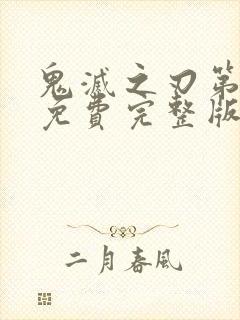 鬼滅之刃第
免費完整版
二月春風